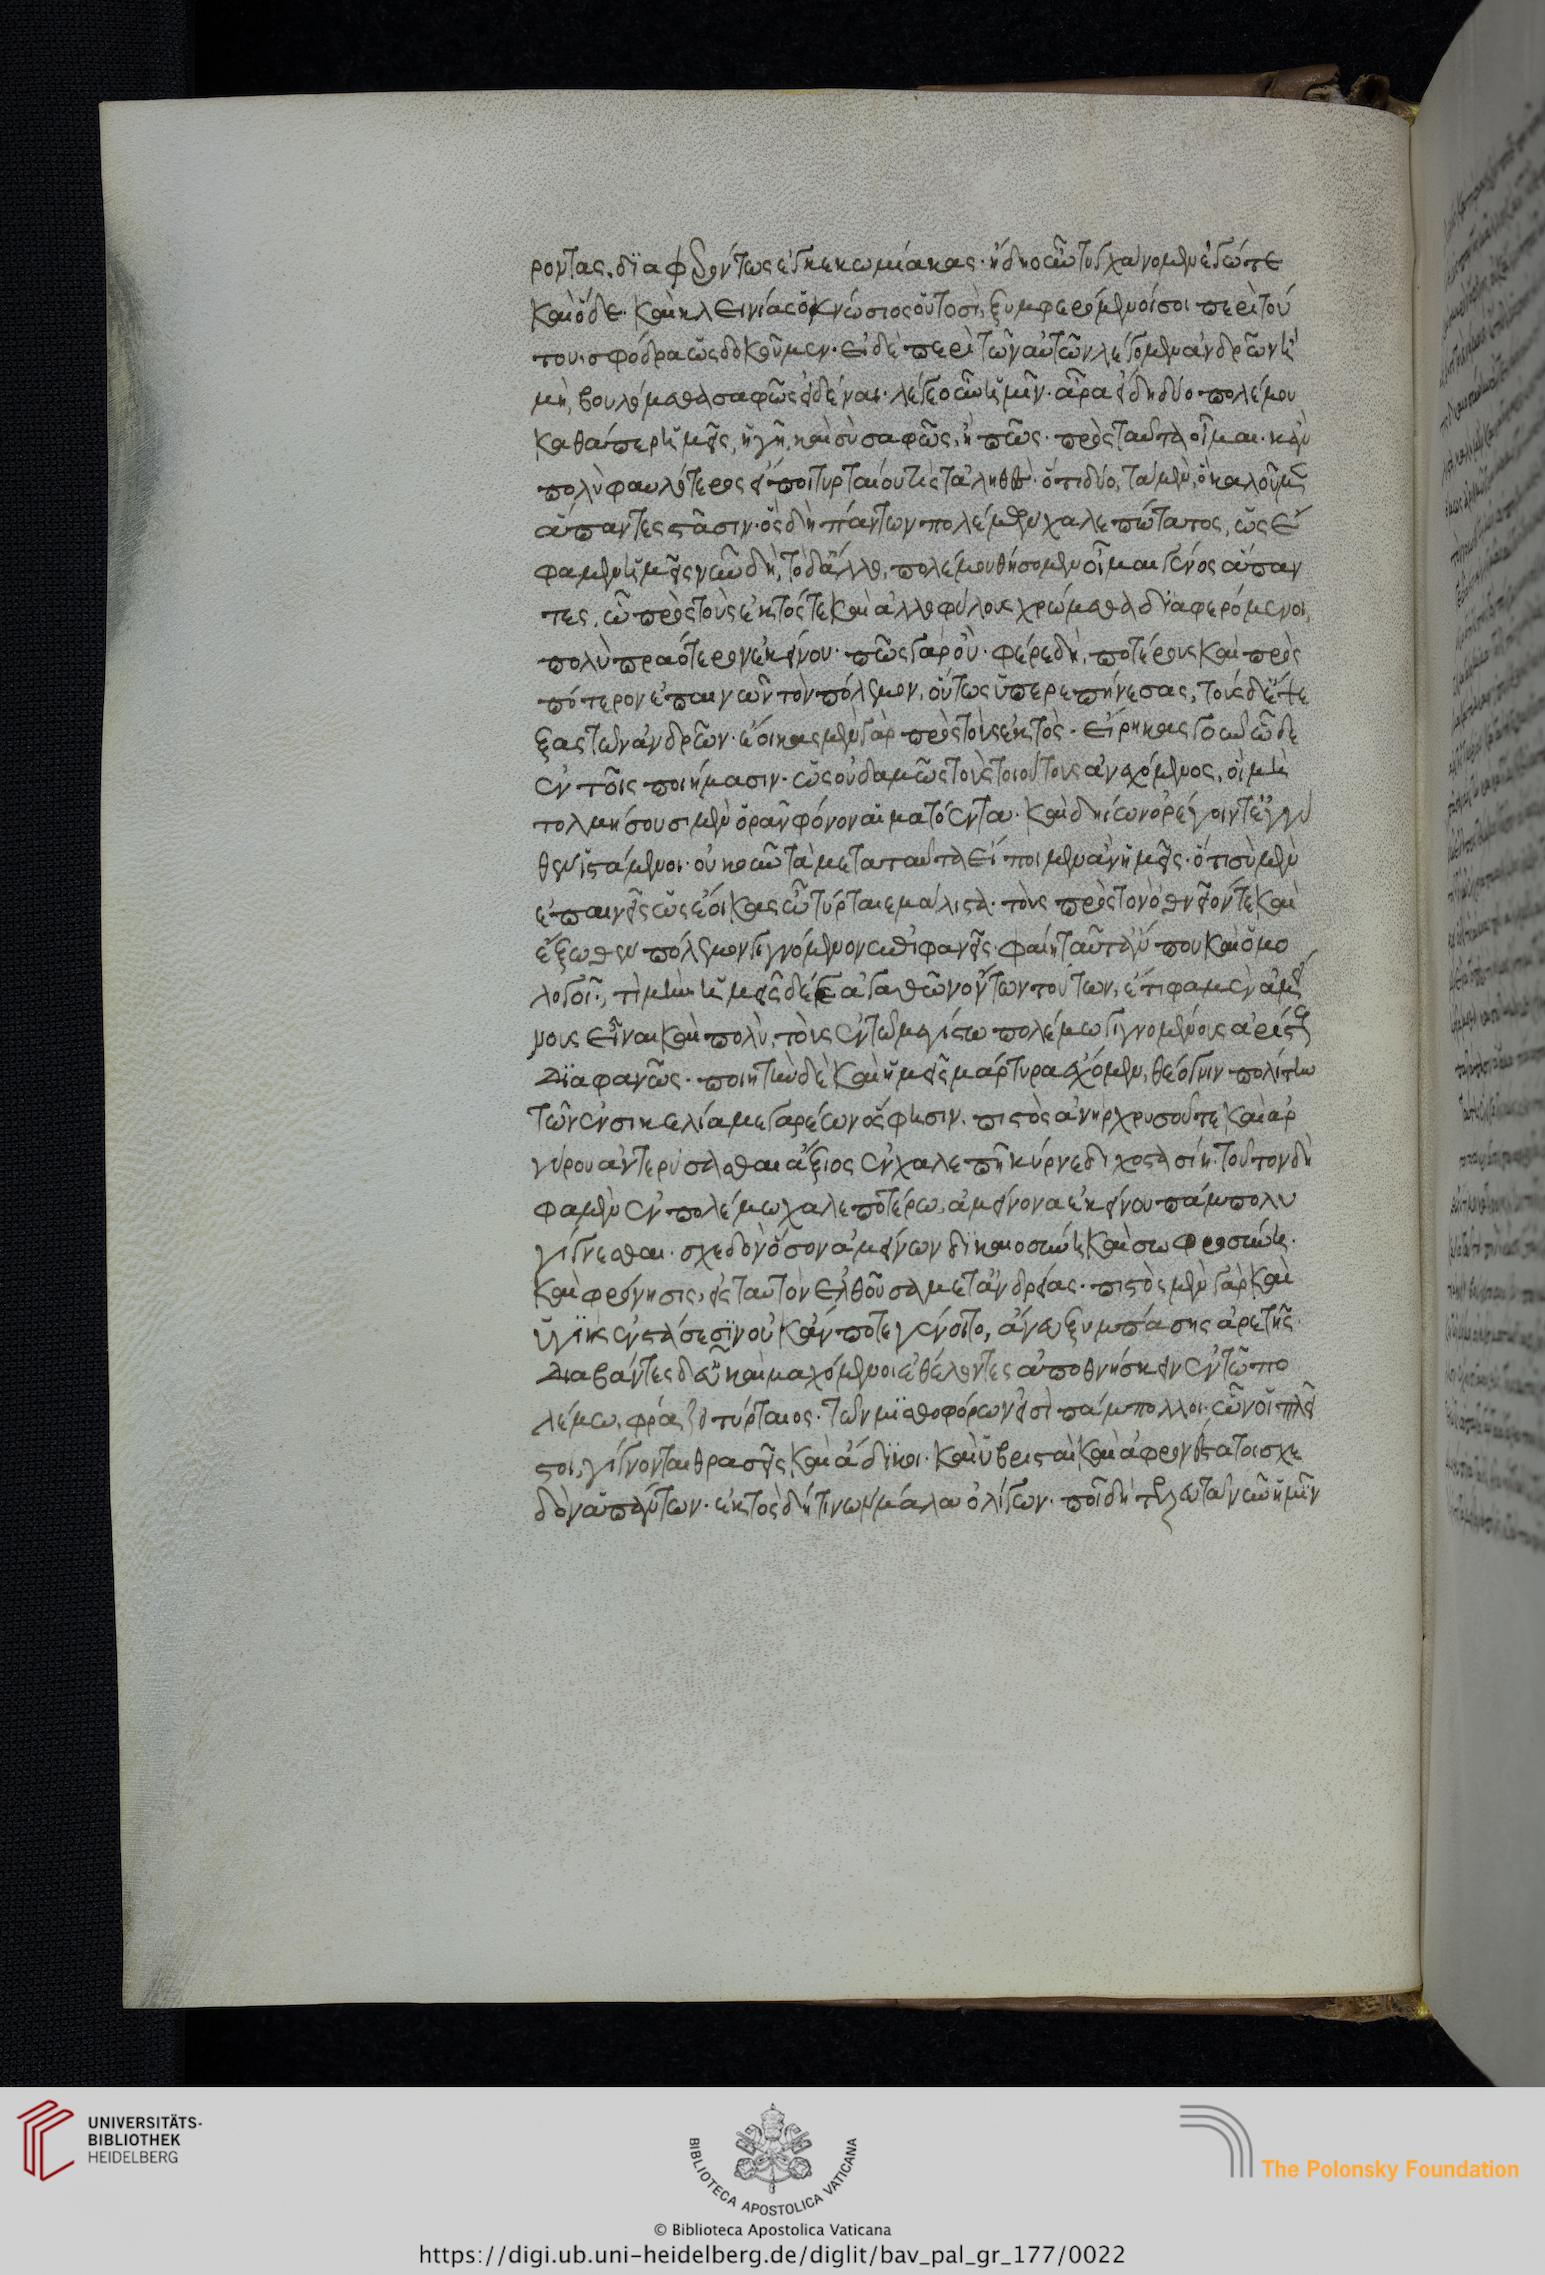 ροντας, διαφερόντως ἐγκεκωμίακας· ἤδη οὖν τυγχάνομεν ἐγώ τε
καὶ ὅδε καὶ κλεινίας ὁ κνώσιος οὑτοσὶ, ξυμφερόμενοί σοι περὶ τού
του σφόδρα ὡς δοκοῦμεν· εἰ δὲ περὶ τῶν αὐτῶν λέγομεν ἀνδρῶν ἢ
μὴ, βουλόμεθα σαφῶς εἰδέναι· λέγε οὖν ἡμῖν· ἆρα εἴδη δύο πολέμου
καθάπερ ἡμεῖς, ἡγῇ καὶ σὺ σαφῶς, ἢ πῶς· πρὸς ταῦτα οἶμαι· κἂν
πολὺ φαυλότερος εἴποι τυρταίου τὶς τἀληθῆ· ὅτι δύο, τὸ μὲν, ὃ καλοῦμεν
ἅπαντες στάσιν· ὃς δὴ πάντων πολέμων χαλεπώτατος, ὡς ἔ
φαμεν ἡμεῖς νῦν δὴ, τὸ δ' ἄλλο, πολέμου θήσομεν οἶμαι γένος ἅπαν
τες, ᾧ πρὸς τοὺς ἐκτός τε καὶ ἀλλοφύλους χρώμεθα διαφερόμενοι,
πολὺ πραότερον ἐκείνου· πῶς γὰρ οὔ· φέρε δὴ, ποτέρους καὶ πρὸς
πότερον ἐπαινῶν τὸν πόλεμον, οὕτως ὑπερεπῄνεσας, τοὺς δὲ ἔψε
ξας τῶν ἀνδρῶν· ἔοικας μὲν γὰρ πρὸς τοὺς ἐκτὸς· εἴρηκας γοῦν ὧδε
ἐν τοῖς ποιήμασιν· ὡς οὐδαμῶς τοὺς τοιούτους ἀνεχόμενος, οἳ μὴ
τολμήσουσι μὲν ὁρᾶν φόνον αἱματόεντα· καὶ δηίων ὀρέγοιντ' ἐγγύ
θεν ἱστάμενοι· οὐκοῦν τὰ μετὰ ταῦτα εἴποιμεν ἂν ἡμεῖς· ὅτι σὺ μὲν
ἐπαινεῖς ὡς ἔοικας ὦ τύρταιε μάλιστα τοὺς πρὸς τὸν ὀθνεῖόν τε καὶ
ἔξωθεν πόλεμον γιγνόμενον ἐπιφανεῖς· φαίη ταῦτ' ἄν που καὶ ὁμο
λογοῖ, τί μὴν· ἡμεῖς δέ γε ἀγαθῶν ὄντων τούτων, ἔτι φαμὲν ἀμεί
νους εἶναι καὶ πολὺ, τοὺς ἐν τῷ μεγίστω πολέμω γιγνομένους ἀρίστους
διαφανῶς· ποιητὴν δὲ καὶ ἡμεῖς μάρτυρα ἔχομεν, θέογνιν πολίτην
τῶν ἐν σικελία μεγαρέων ὅς φησιν, πιστὸς ἀνὴρ χρυσοῦ τε καὶ ἀρ
γύρου ἀντερύσασθαι ἄξιος ἐν χαλεπῇ κύρνε διχοστασίη· τοῦτον δὴ
φαμὲν ἐν πολέμω χαλεποτέρω, ἀμείνονα ἐκείνου πάμπολυ
γίγνεσθαι· σχεδὸν ὅσον ἀμείνων δικαιοσύνη καὶ σωφροσύνη·
καὶ φρόνησις, εἰς ταυτὸν ἐλθοῦσαι μετ' ἀνδρείας· πιστὸς μὲν γὰρ καὶ
ὑγιὴς ἐν στάσεσιν οὐκ ἄν ποτε γένοιτο, ἄνευ ξυμπάσης ἀρετῆς·
διαβάντες δ' εὖ καὶ μαχόμενοι ἐθέλοντες ἀποθνήσκειν ἐν τῷ πο
λέμω, φράζει τύρταιος· τῶν μισθοφόρων εἰσὶ πάμπολλοι· ὧν οἱ πλεῖ
στοι, γίγνονται θρασεῖς καὶ ἄδικοι· καὶ ὑβρισταὶ καὶ ἀφρονέστατοι σχε
δὸν ἁπάντων· ἐκτὸς δή τινων μάλα ὀλίγων· ποῖ δὴ τελευτᾷ νῦν ἡμῖν
UNIVERSITÄTS-
BIBLIOTHEK
HEIDELBERG
BIBLIOTECA APOSTOLICA VATICANA
© Biblioteca Apostolica Vaticana
The Polonsky Foundation
https://digi.ub.uni-heidelberg.de/diglit/bav_pal_gr_177/0022